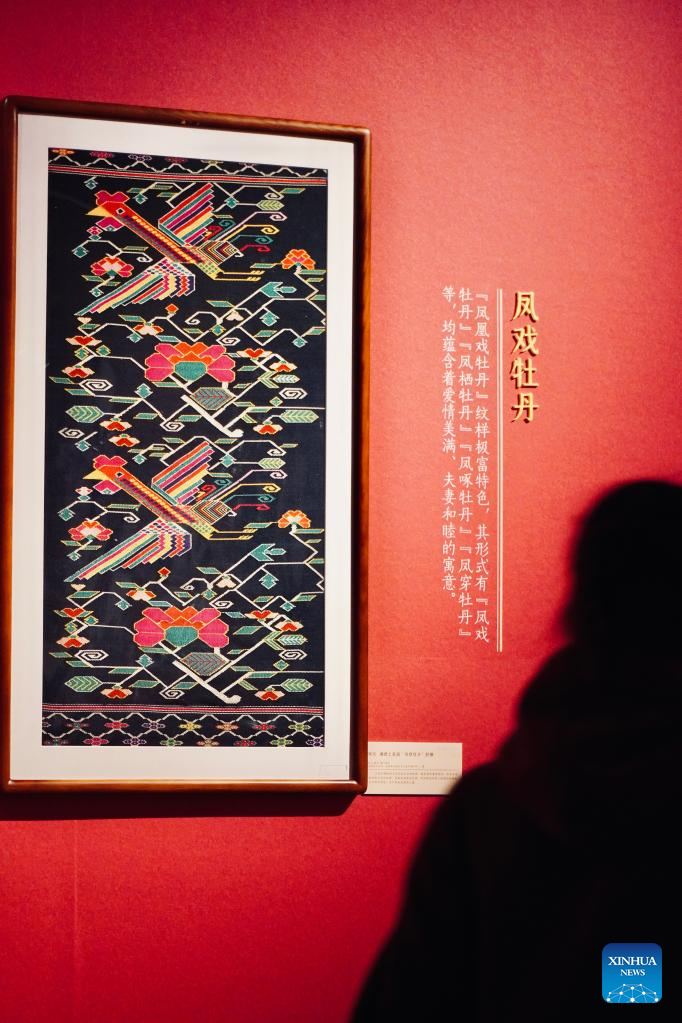 凤戏牡丹
『凤凰戏牡丹』纹样极富特色，其形式有『凤戏
牡丹』『凤栖牡丹』『凤啄牡丹』『凤穿牡丹』
等，均蕴含着爱情美满、夫妻和睦的寓意。
XINHUA
NEWS